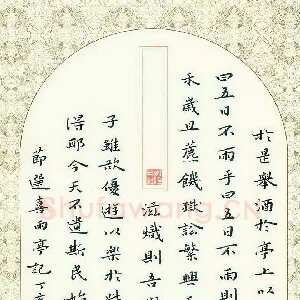 於是舉酒於亭上以
曰五日不雨乎曰五日不雨則
禾歲且薦饑獄訟繁興
滋熾則吾
子雖欲優遊以樂於
得耶今天不遺斯民始
節選喜雨亭記丁
Shufawang.cn